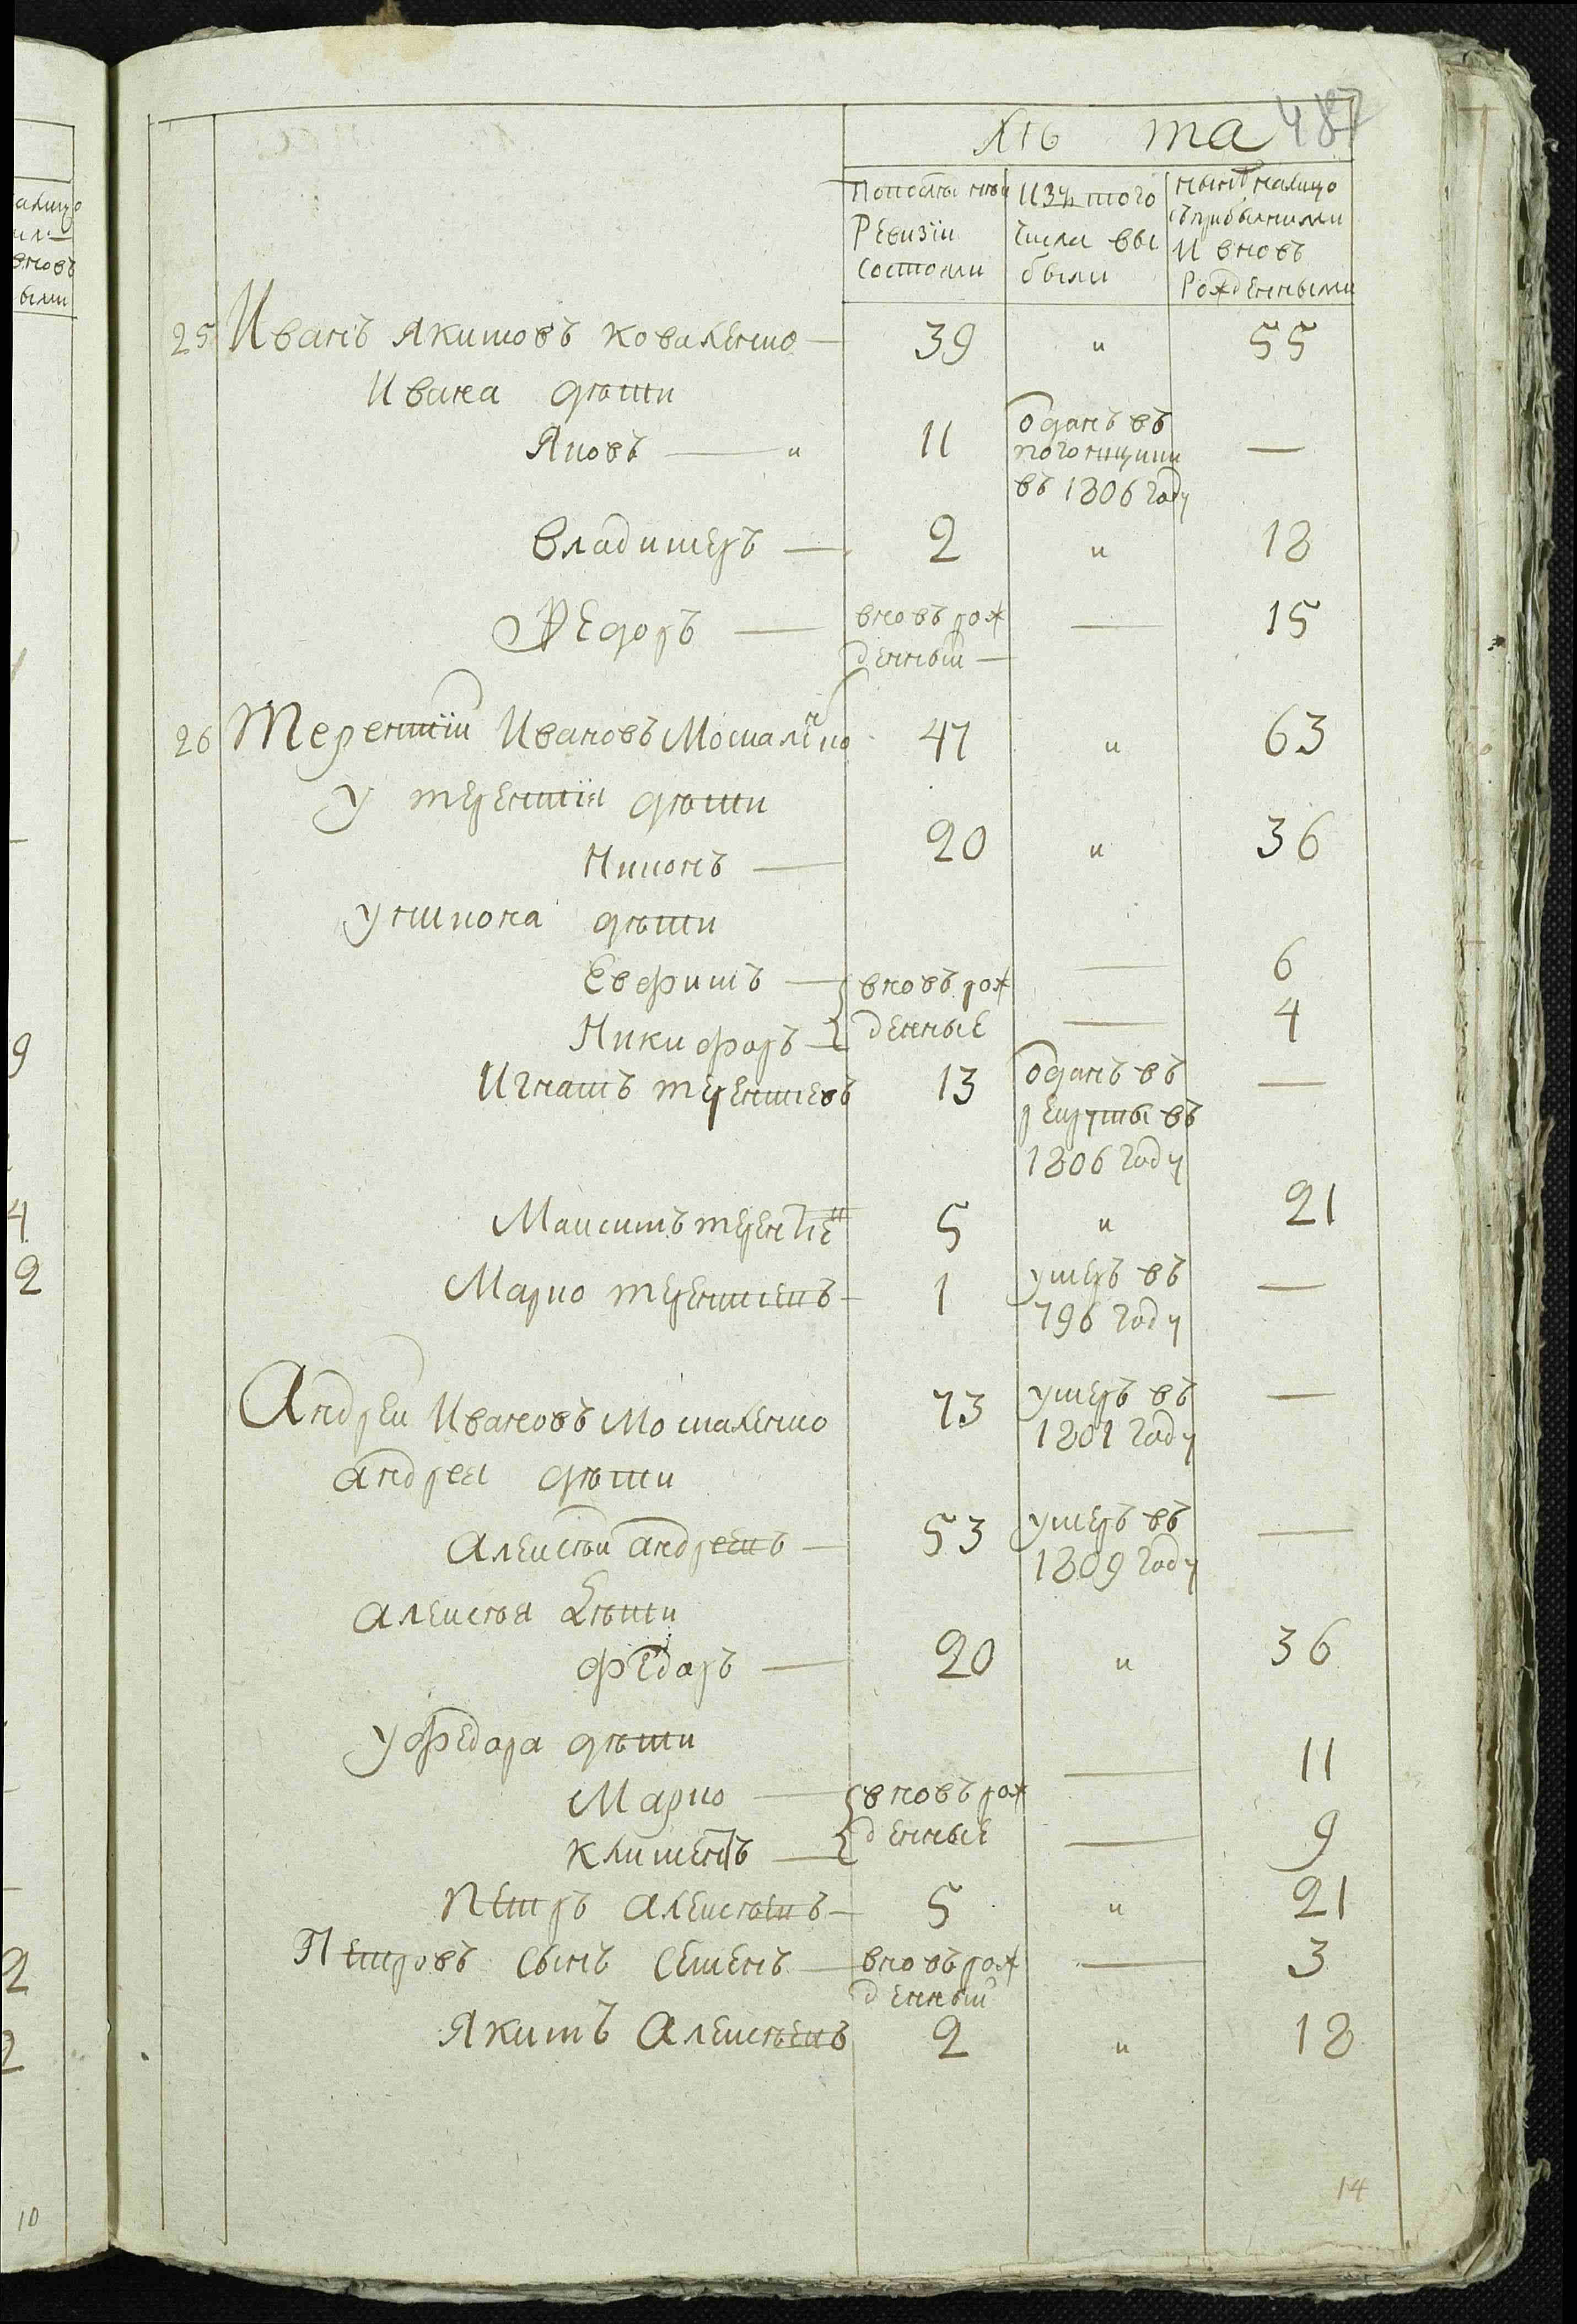 487
лѣ та
По послѣдней Ревизіи состояли
Изъ того числа выбыли
Нынѣ налицо съ прибылыми и вновь рожденными
25 Иванъ Якимовъ Коваленко — 39 " 55
Ивана дѣти
Яковъ — " 11 отданъ въ погонщики въ 1806 году —
Владимеръ — 2 " 18
Федоръ — вновь рожденный — — 15
26 Терентіи Ивановъ Москаленко 47 " 63
У терентія дѣти
Никонъ — 20 " 36
у никона дѣти
Евфимъ — вновь рожденные — 6
Никифоръ — — 4
Игнатъ терентиевъ 13 отданъ въ рекруты въ 1806 году —
Максимъ терентие 5 " 21
Марко терентиевъ — 1 умеръ въ 796 году —
Андреи Ивановъ Москаленко 73 умеръ въ 1801 году —
андрея дѣти
Алексѣи андреевъ — 53 умеръ въ 1809 году —
алексѣя дѣти
федоръ — 20 " 36
у федора дѣти
Марко — вновь рожденные — 11
Климентъ — — 9
Петръ алексѣевъ — 5 " 21
Петровъ сынъ Семенъ — вновь рожденный — 3
Якимъ Алексѣевъ 2 " 18
14
10